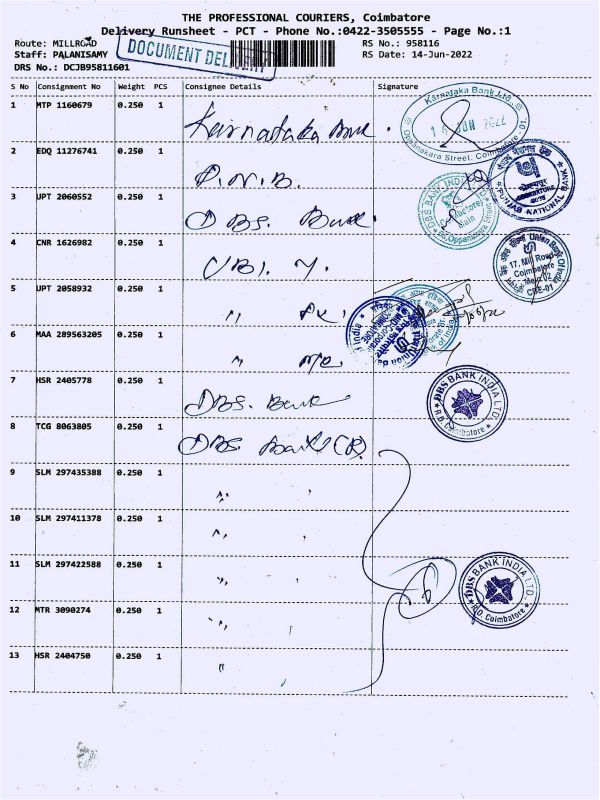 THE PROFESSIONAL COURIERS, Coimbatore
Delivery Runsheet - PCT - Phone No.:0422-3505555 - Page No.:1
Route: MILLROAD
RS No.: 958116
Staff: PALANISAMY
RS Date: 14-Jun-2022
DRS No.: DCJB95811601
DOCUMENT DEL
S No Consignment No Weight PCS Consignee Details Signature
1 MTP 1160679 0.250 1 Karnataka Bank
Karnataka Bank Ltd.,
JUN 2022
Oppanakara Street, Coimbatore - 01.
2 EDQ 11276741 0.250 1 P.N.B.
PUNJAB NATIONAL BANK
3 UPT 2060552 0.250 1 DBS. Bank
DBS BANK INDIA LTD
4 CNR 1626982 0.250 1 UBI.
17, Mill Road
Coimbatore
Main Br
CBE-01
5 UPT 2058932 0.250 1 "
6 MAA 289563205 0.250 1 "
7 HSR 2405778 0.250 1 DBS. Bank
DBS BANK INDIA LTD.
R.D. Coimbatore
8 TCG 8063805 0.250 1 DBS Bank (R).
9 SLM 297435388 0.250 1 "
10 SLM 297411378 0.250 1 "
11 SLM 297422588 0.250 1 "
DBS BANK INDIA LTD.
R.D. Coimbatore
12 MTR 3090274 0.250 1 "
13 HSR 2404750 0.250 1 "